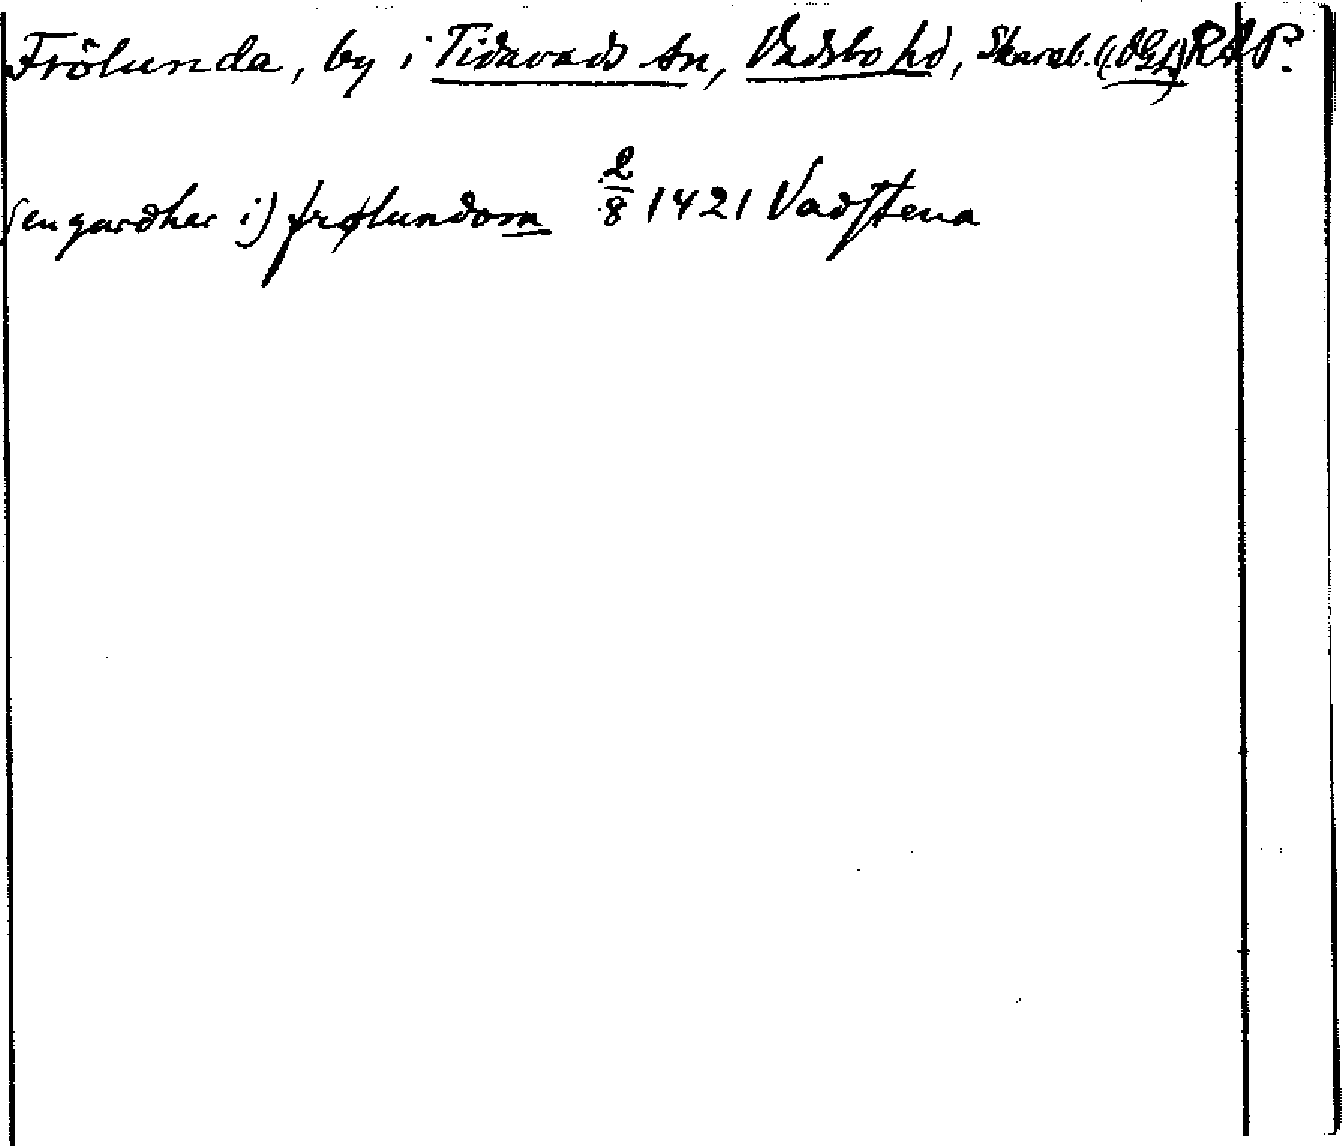 Frölunda, by i Tidavads sn, Vadsbo hd, Skarab. RAP.
(en gardher i) frølundom 2/8 1421 Vadstena